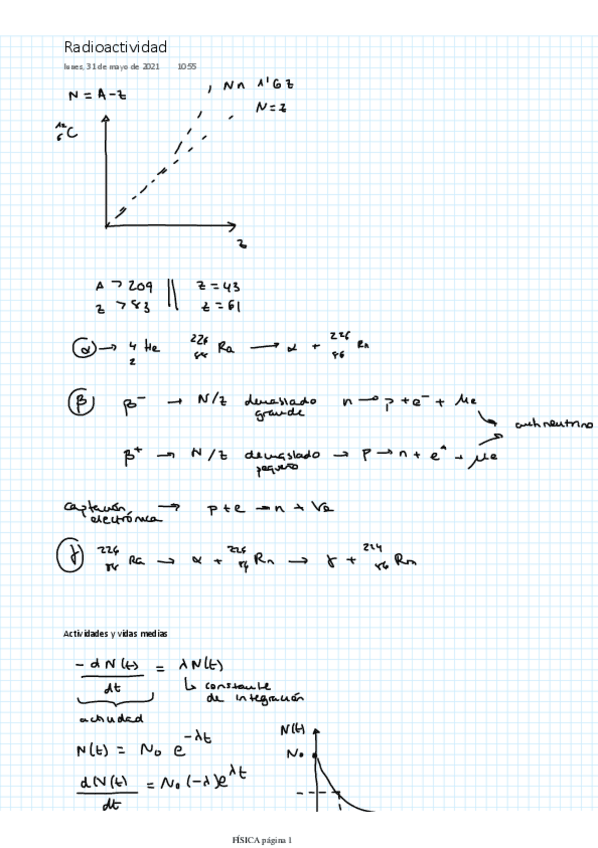 Radioactividad
lunes, 31 de mayo de 2021 10:55
N = A - Z
N ≈ 1'6 Z
N = Z
¹²₆C
Z
A > 209 || Z = 43
Z > 83 || Z = 61
α → ⁴₂He ²²⁶₈₈Ra → α + ²²⁶₈₆Rn
β β⁻ → N/Z demasiado grande n → p + e⁻ + μe
antineutrino
β⁺ → N/Z demasiado pequeño → p → n + e⁺ + μe
captación electrónica → p + e → n + νe
γ ²²⁶₈₈Ra → α + ²²⁶₈₆Rn → γ + ²²⁴₈₆Rn
Actividades y vidas medias
-dN(t)/dt = λN(t)
↳ constante de integración
actividad
N(t) = N₀ e^-λt
dN(t)/dt = N₀(-λ)e^λt
N(t)
N₀
FÍSICA página 1